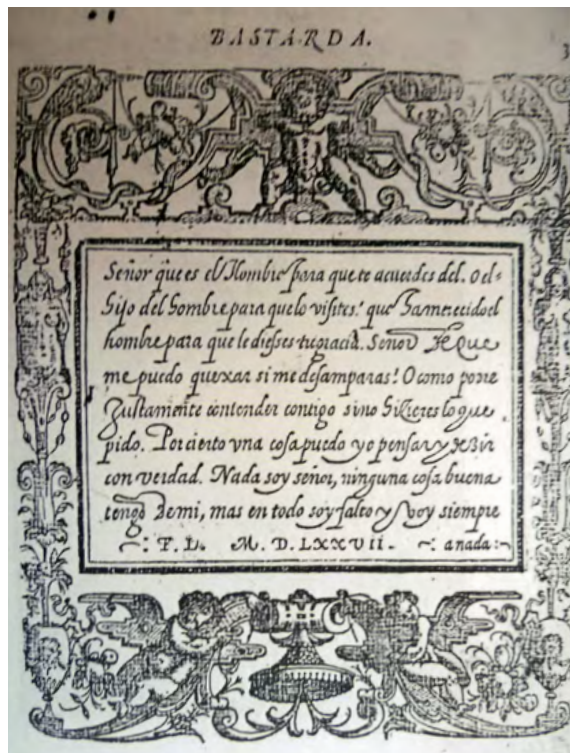 BASTARDA.
3
Señor que es el Hombre para que te acuerdes del. O el
hijo del hombre para que lo visites! que ha merecido el
hombre para que le diesses tu gracia. Señor de que
me puedo quexar si me desamparas! O como podre
Justamente contender contigo si no hizieres lo que
pido. Por cierto vna cosa puedo yo pensar y dezir
con verdad. Nada soy señor, ninguna cosa buena
tengo de mi, mas en todo soy falto y voy siempre
F. L. M. D. LXXVII. a nada: